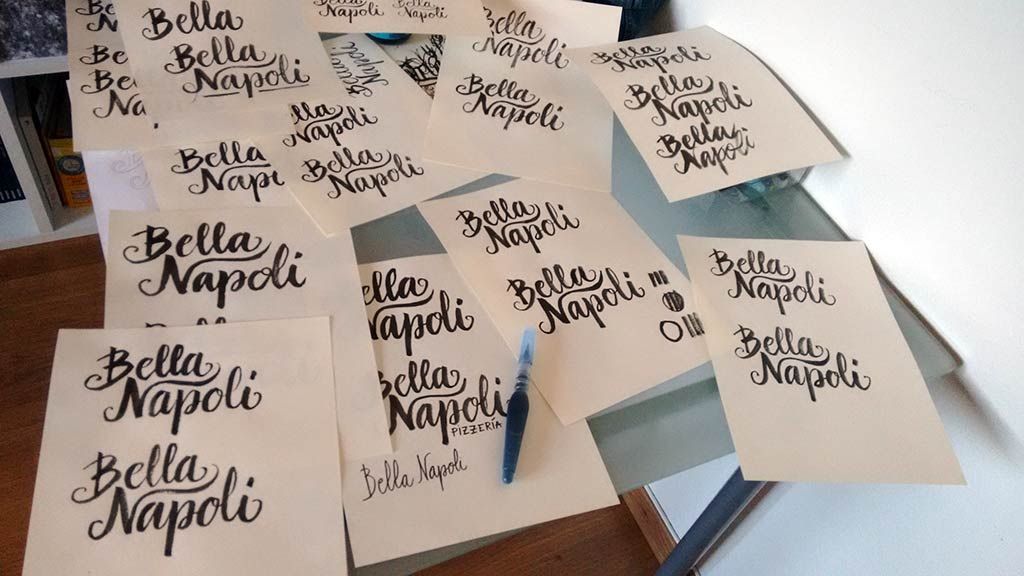 Bella
Bella
Napoli
Napoli
Bella
Napoli
Napoli
Bella
Napoli
Bella
Napoli
Bella
Napoli
Bella
Napoli
Bella
Napoli
Bella
Napoli
Bella
Bella
Napoli
Bella
Napoli
Bella
Napoli
Bella
Napoli
Bella
Napoli
Bella
Napoli
Napoli
Bella
Napoli
PIZZERIA
Bella Napoli
Bella
Napoli
Bella
Napoli